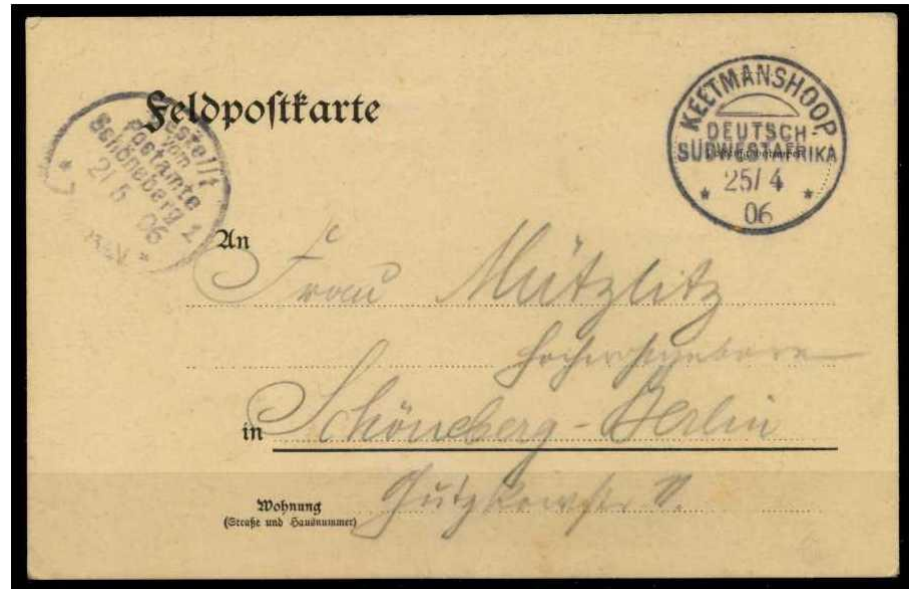 Feldpostkarte
KEETMANSHOOP
DEUTSCH-
SÜDWESTAFRIKA
25/4
06
Bestellt
vom
Postamte
Schöneberg 1
21/5 06
An
Frau Mützlitz
Hochwohlgeboren
in Schöneberg-Berlin
Wohnung
(Straße und Hausnummer)
Gutzkowstr